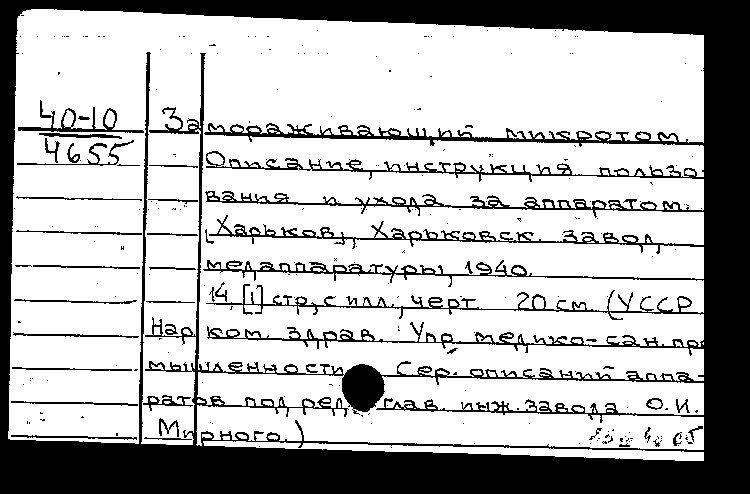 40-10
4655
Замораживающий микротом.
Описание, инструкция пользо-
вания и ухода за аппаратом.
[Харьков], Харьковск. завод
медаппаратуры, 1940.
14, [1] стр, с илл., черт. 20 см. (УССР
Нар ком. здрав. Упр. медико-сан. про
мышленности. Сер. описаний аппа-
ратов под ред. глав. инж. завода О.И.
Мирного.)